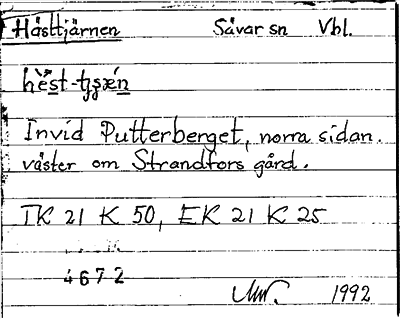 Hästtjärnen Sävar sn Vbl.
Invid Putterberget, norra sidan.
väster om Strandfors gård.
TK 21 K 50, EK 21 K 25
4672
1992